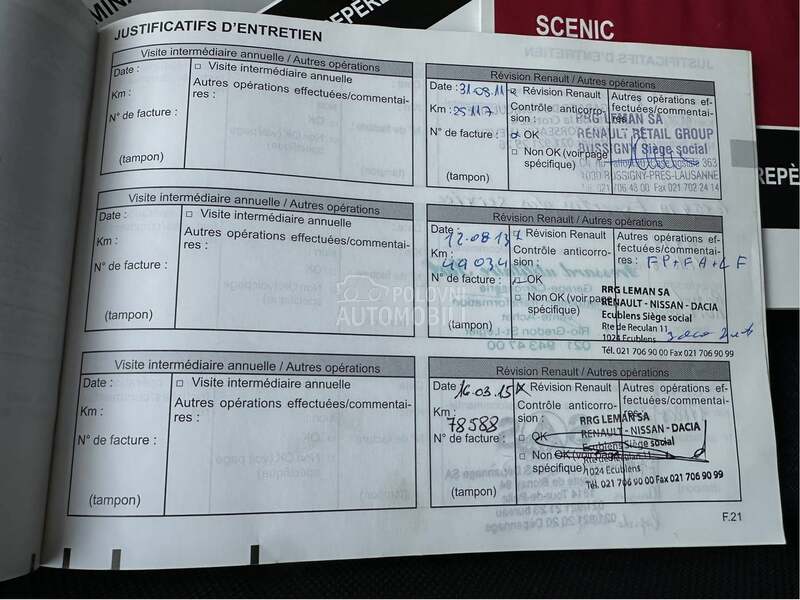 SCENIC
JUSTIFICATIFS D'ENTRETIEN
Visite intermédiaire annuelle / Autres opérations
Date :
□ Visite intermédiaire annuelle
Km :
Autres opérations effectuées/commentaires :
N° de facture :
(tampon)
Révision Renault / Autres opérations
Date : 31-08-11
Révision Renault
Km : 25117
Contrôle anticorrosion :
N° de facture :
OK
□ Non OK (voir page spécifique)
(tampon)
Autres opérations effectuées/commentaires
RRG LEMAN SA
RENAULT RETAIL GROUP
BUSSIGNY Siège social
1030 BUSSIGNY-PRES-LAUSANNE
Tél. 021 706 48 00 Fax 021.702 24 14
Visite intermédiaire annuelle / Autres opérations
Date :
□ Visite intermédiaire annuelle
Km :
Autres opérations effectuées/commentaires :
N° de facture :
(tampon)
Révision Renault / Autres opérations
Date :
12-08-13
Révision Renault
Km :
49034
Contrôle anticorrosion :
N° de facture :
OK
□ Non OK (voir page spécifique)
(tampon)
Autres opérations effectuées/commentaires : FP+FA+LF
RRG LEMAN SA
RENAULT - NISSAN - DACIA
Ecublens Siège social
Rte de Reculan 11
1024 Ecublens
Tél. 021 706 90 00 Fax 021 706 90 99
Visite intermédiaire annuelle / Autres opérations
Date :
□ Visite intermédiaire annuelle
Km :
Autres opérations effectuées/commentaires :
N° de facture :
(tampon)
Révision Renault / Autres opérations
Date : 16.03.15
Révision Renault
Km :
78588
Contrôle anticorrosion :
N° de facture :
□ OK
□ Non OK (voir page spécifique)
(tampon)
Autres opérations effectuées/commentaires
RRG LEMAN SA
RENAULT - NISSAN - DACIA
Ecublens Siège social
Rte de Reculan 11
1024 Ecublens
Tél. 021 706 90 00 Fax 021 706 90 99
F.21
POLOVNI
AUTOMOBILI